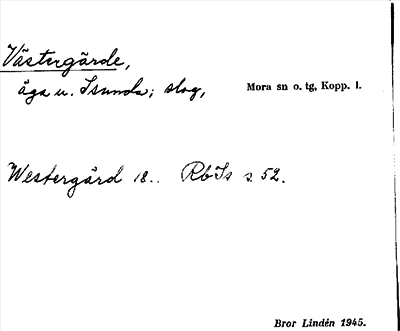 Västergärde,
äga u. Isunda; slog, Mora sn o. tg, Kopp. l.
Westergärd 18.. RbIs s. 52.
Bror Lindén 1945.